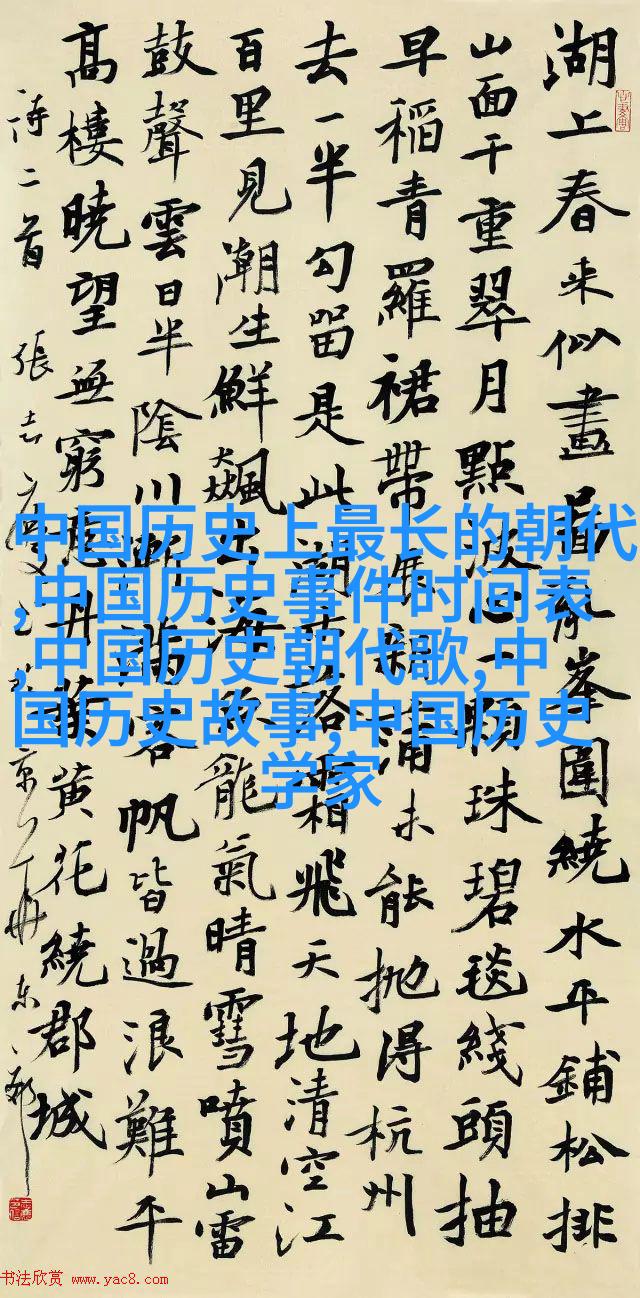 湖上春来似畫亂峯圍繞水平鋪松排
山面千重翠月點波心一顆珠碧毯綫頭抽
早稻青羅裙帶展新蒲未能抛得杭州
去一半勾留是此湖路霜飛天地清空江
百里見潮生鮮飆出海魚龍氣晴雪噴山雷
鼓聲雲日半陰川漸滿客帆皆過浪難平
高樓曉望無窮意丹葉黄花繞郡城
詩二首 張志慶
中国历史上最长的朝代
,中国历史事件时间表
,中国历史朝代歌,中
国历史故事,中国历史
学家
书法欣赏 www.yac8.com